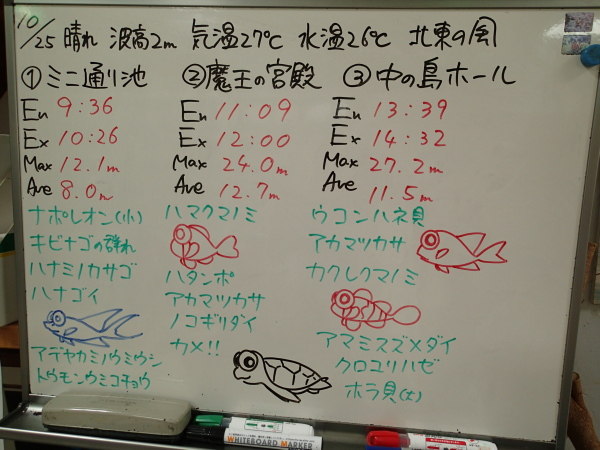 10/25 晴れ 波高2m 気温27℃ 水温26℃ 北東の風
①ミニ通り池
En 9:36
Ex 10:26
Max 12.1m
Ave 8.0m
ナポレオン(小)
キビナゴの群れ
ハナミノカサゴ
ハナゴイ
アデヤカミノウミウシ
トウモンウミコチョウ
②魔王の宮殿
En 11:09
Ex 12:00
Max 24.0m
Ave 12.7m
ハマクマノミ
ハタンポ
アカマツカサ
ノコギリダイ
カメ!!
③中の島ホール
En 13:39
Ex 14:32
Max 27.2m
Ave 11.5m
ウコンハネ貝
アカマツカサ
カクレクマノミ
アマミスズメダイ
クロユリハゼ
ホラ貝(大)
WHITEBOARD MARKER